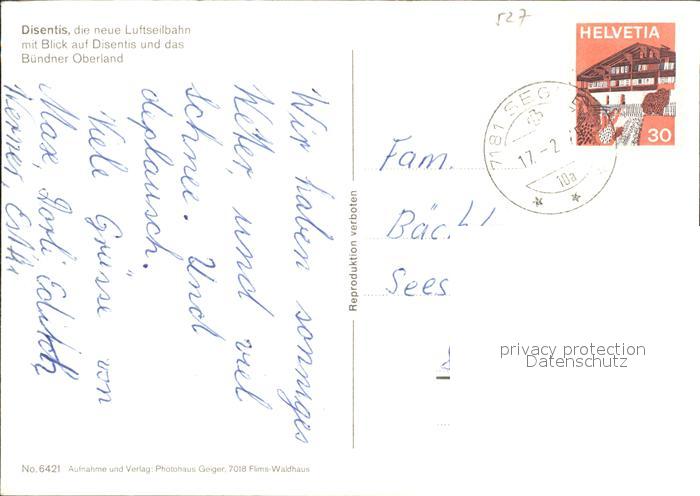 Disentis, die neue Luftseilbahn
mit Blick auf Disentis und das
Bündner Oberland
527
HELVETIA
30
7181 SEG
17.-2.
10a
Wir haben sonniges
Wetter, und viel
Schnee. Und
deplausch.
Viele Grüsse von
Max, Dorli Edith
Werner, Esth
Reproduktion verboten
Fam.
Bäc
Sees
privacy protection
Datenschutz
No. 6421 Aufnahme und Verlag: Photohaus Geiger, 7018 Flims-Waldhaus